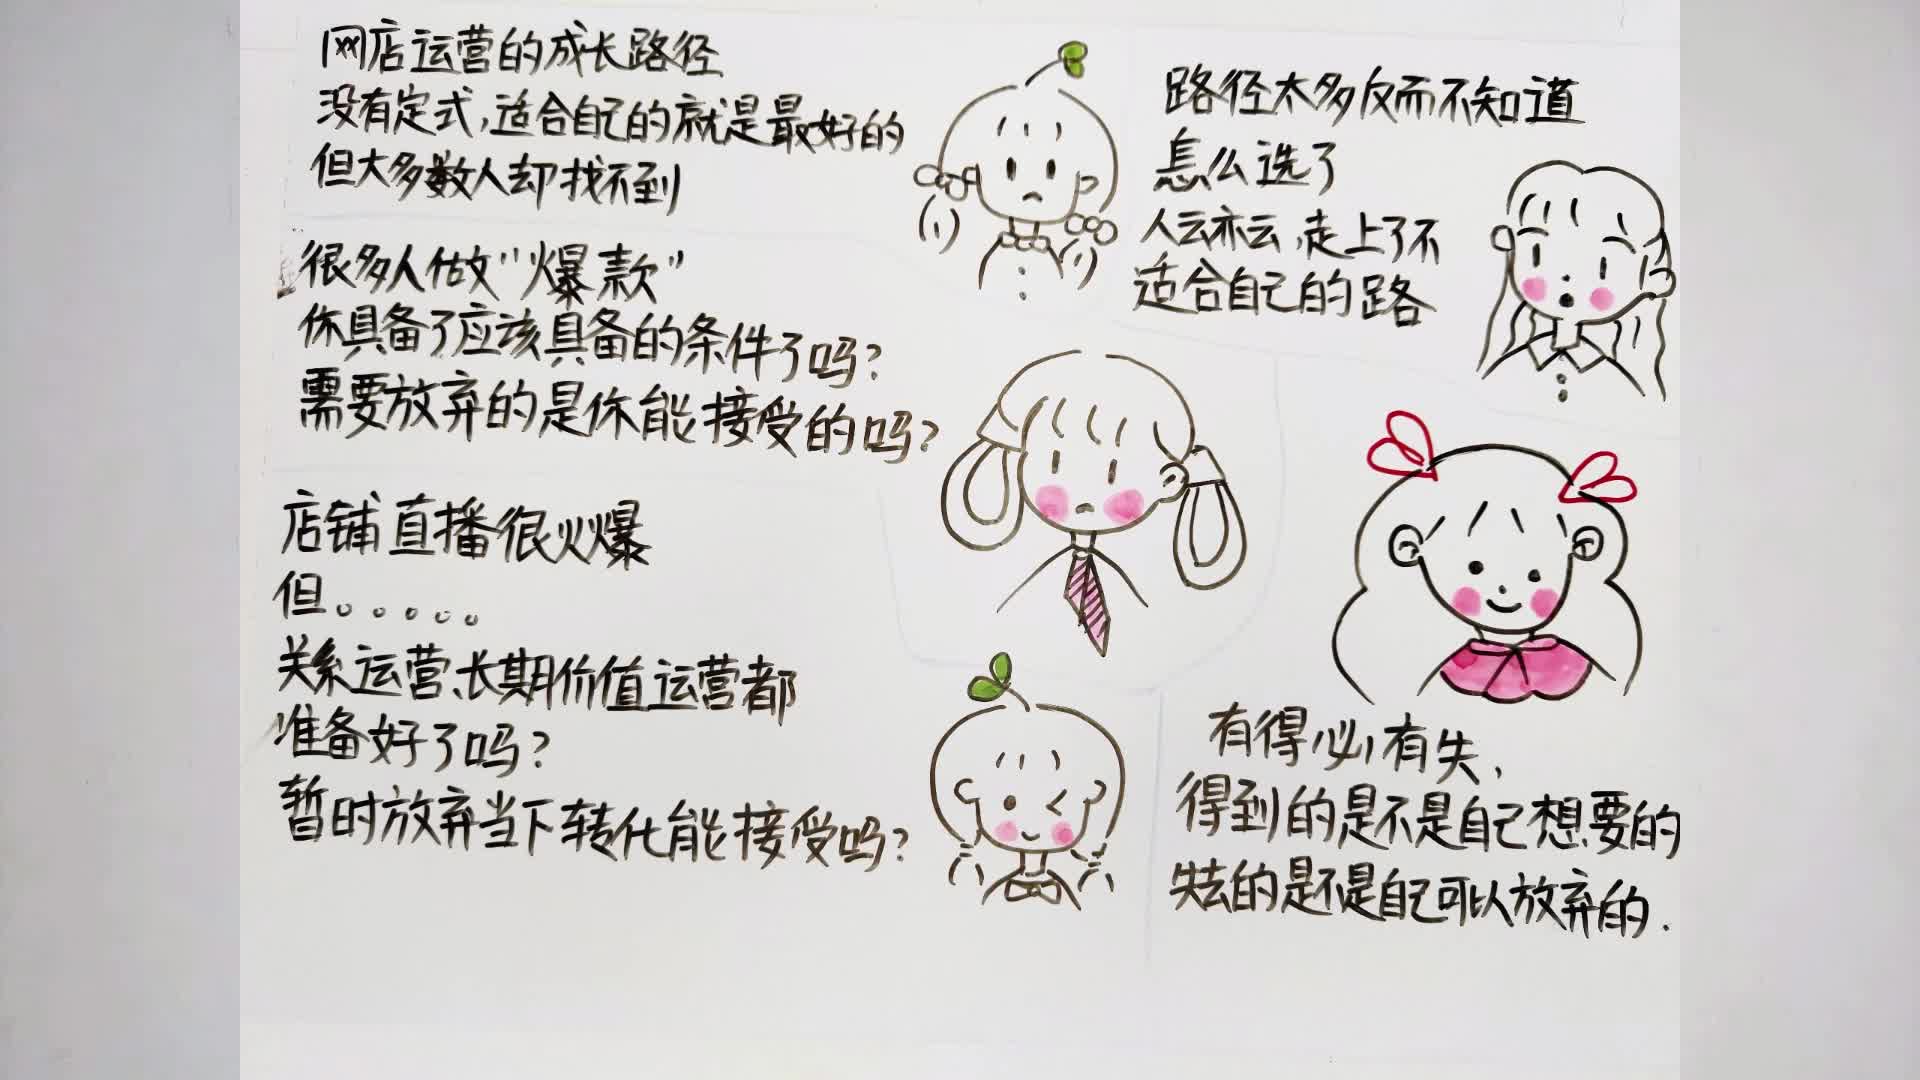 网店运营的成长路径
没有定式,适合自己的就是最好的
但大多数人却找不到
路径太多反而不知道
怎么选了
人云亦云,走上了不
适合自己的路
很多人做“爆款”
你具备了应该具备的条件了吗?
需要放弃的是你能接受的吗?
店铺直播很火爆
但。。。。。
关系运营、长期价值运营都
准备好了吗?
暂时放弃当下转化能接受吗?
有得必有失,
得到的是不是自己想要的
失去的是不是自己可以放弃的.